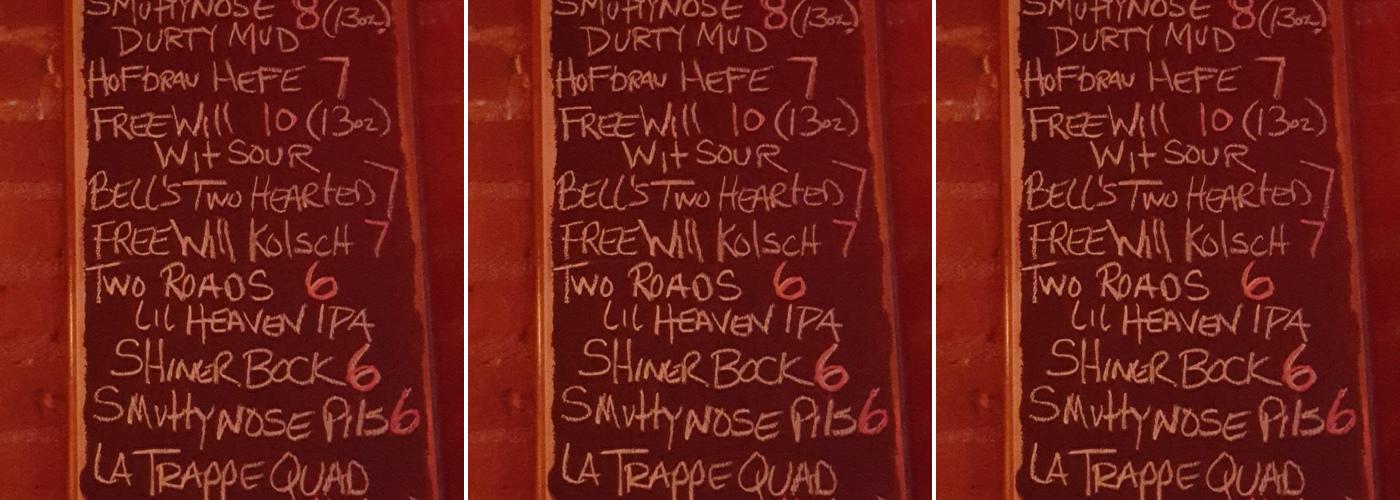 SMUTTYNOSE 8 (13oz)
DURTY MUD
HOFBRAU HEFE 7
FREEWILL 10 (13oz)
WIT SOUR
BELL'S TWO HEARTED 7
FREEWILL KOLSCH 7
TWO ROADS 6
LIL HEAVEN IPA
SHINER BOCK 6
SMUTTYNOSE PILS 6
LA TRAPPE QUAD
SMUTTYNOSE 8 (13oz)
DURTY MUD
HOFBRAU HEFE 7
FREEWILL 10 (13oz)
WIT SOUR
BELL'S TWO HEARTED 7
FREEWILL KOLSCH 7
TWO ROADS 6
LIL HEAVEN IPA
SHINER BOCK 6
SMUTTYNOSE PILS 6
LA TRAPPE QUAD
SMUTTYNOSE 8 (13oz)
DURTY MUD
HOFBRAU HEFE 7
FREEWILL 10 (13oz)
WIT SOUR
BELL'S TWO HEARTED 7
FREEWILL KOLSCH 7
TWO ROADS 6
LIL HEAVEN IPA
SHINER BOCK 6
SMUTTYNOSE PILS 6
LA TRAPPE QUAD